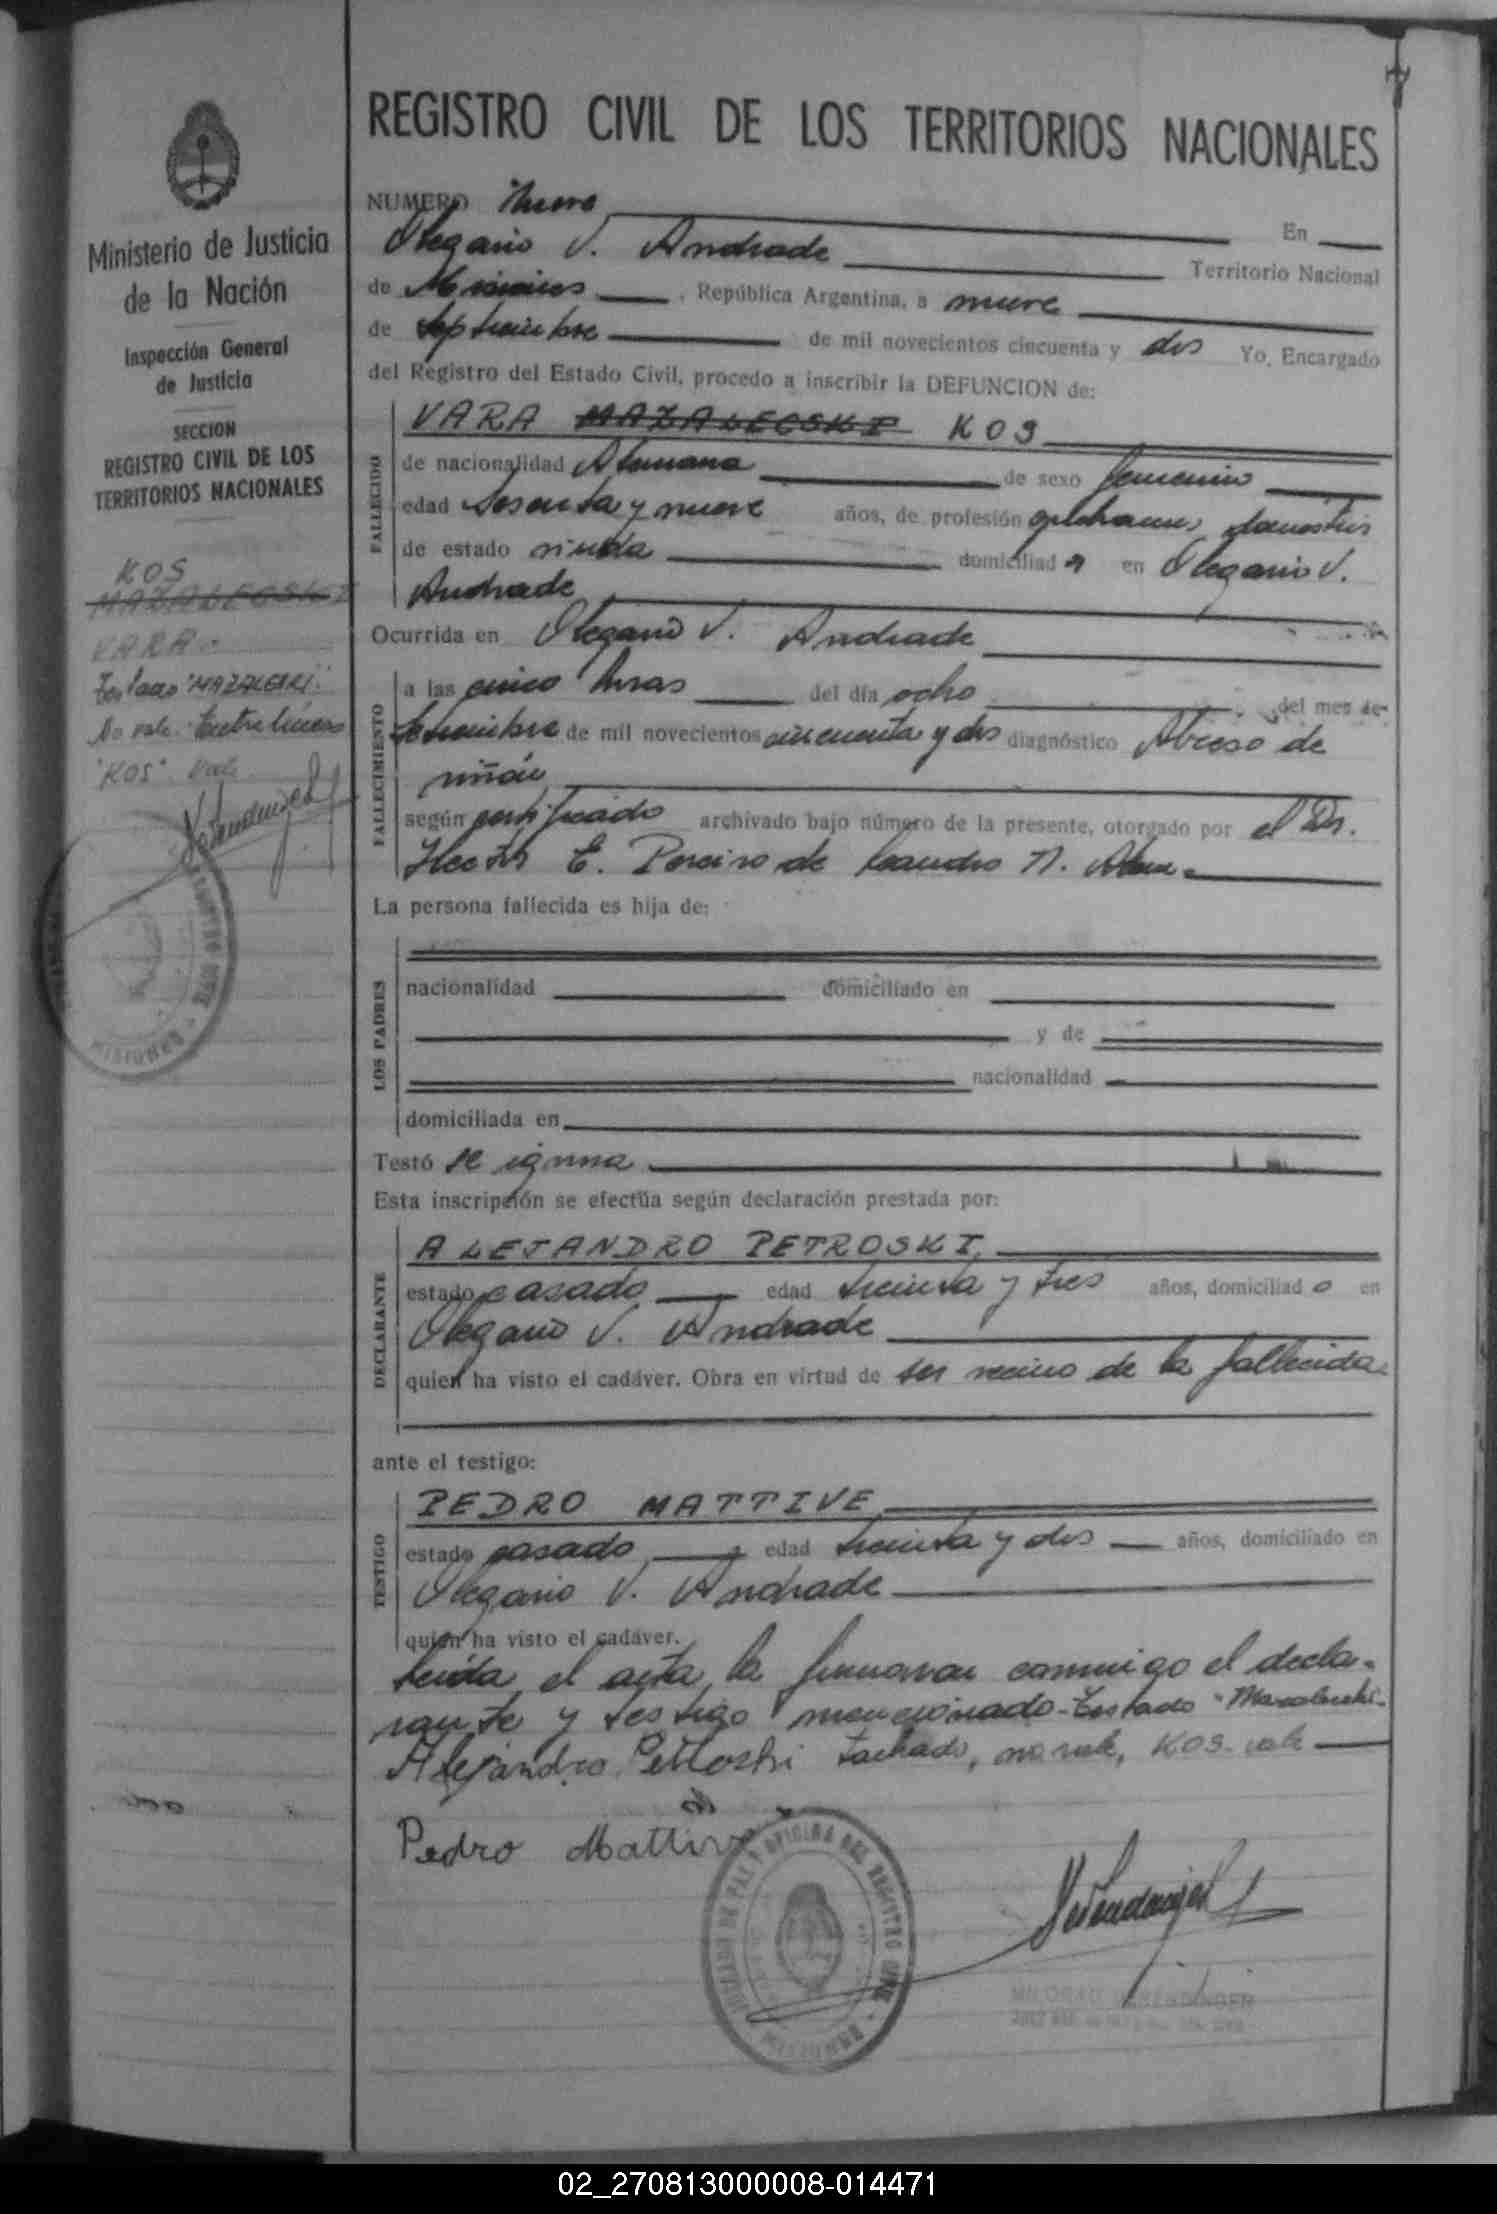 REGISTRO CIVIL DE LOS TERRITORIOS NACIONALES
Ministerio de Justicia
de la Nación
Inspección General
de Justicia
SECCION
REGISTRO CIVIL DE LOS
TERRITORIOS NACIONALES
KOS
MAZALECSKI
VARA.-
Testado "MAZALECSKI".
No vale. Entre líneas
"KOS". Vale
NUMERO Nueve En
Olegario V. Andrade Territorio Nacional
de Misiones, República Argentina, a nueve
de septiembre de mil novecientos cincuenta y dos Yo, Encargado
del Registro del Estado Civil, procedo a inscribir la DEFUNCION de:
FALLECIDO
VARA MAZALECSKI KOS
de nacionalidad Alemana de sexo femenino
edad sesenta y nueve años, de profesión domésticos
de estado viuda domiciliada en Olegario V.
Andrade
Ocurrida en Olegario V. Andrade
FALLECIMIENTO
a las cinco horas del día ocho del mes de
setiembre de mil novecientos cincuenta y dos diagnóstico Abceso de
riñón
según certificado archivado bajo número de la presente, otorgado por el Dr.
Hector E. Pereiro de Leandro N. Alem.
La persona fallecida es hija de:
LOS PADRES
nacionalidad domiciliado en
y de
nacionalidad
domiciliada en
Testó se ignora
Esta inscripción se efectúa según declaración prestada por:
DECLARANTE
ALEJANDRO PETROSKI,
estado casado edad treinta y tres años, domiciliado en
Olegario V. Andrade
quien ha visto el cadáver. Obra en virtud de ser vecino de la fallecida
ante el testigo:
TESTIGO
PEDRO MATTIVE
estado casado, edad treinta y dos años, domiciliado en
Olegario V. Andrade
quien ha visto el cadáver.
Leída el acta, la firmaron conmigo el decla-
rante y testigo mencionado. Testado "Mazalecski"
Alejandro Petroski Tachado, no vale, KOS. vale
Pedro Mattive
JUZGADO DE PAZ Y OFICINA DEL REGISTRO CIVIL
MISIONES
02_270813000008-014471